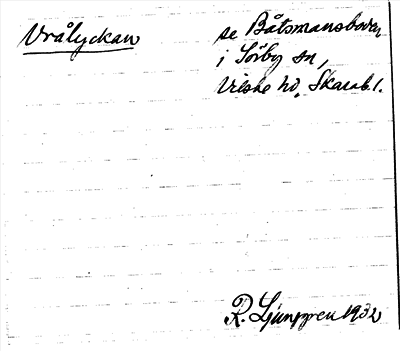 Vrålyckan
se Båtsmansboden,
i Sörby sn,
Vilske hd, Skarab. l.
R. Ljunggren 1932